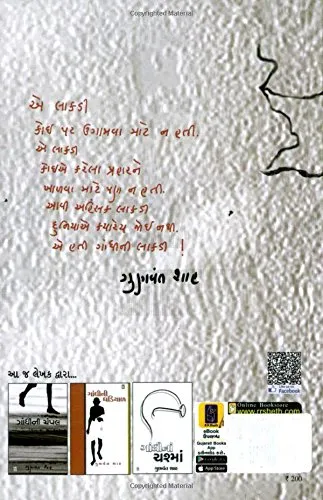 એ લાકડી
કોઈ પર ઉગામવા માટે ન હતી.
એ લાકડી
કોઈએ કરેલા પ્રહારને
ખાળવા માટે પણ ન હતી.
આવી અહિંસક લાકડી
દુનિયાએ ક્યારેય જોઈ નથી.
એ હતી ગાંધીની લાકડી !
ગુણવંત શાહ
આ જ લેખક દ્વારા...
ગાંધીની ચંપલ
ગુણવંત શાહ
ગાંધીની ઘડિયાળ
ગુણવંત શાહ
ગાંધીનાં ચશ્માં
ગુણવંત શાહ
Facebook
Online Bookstore
www.rrsheth.com
eBook
ઉપલબ્ધ
Gujarati Books
App
Google Play
App Store
₹ 200